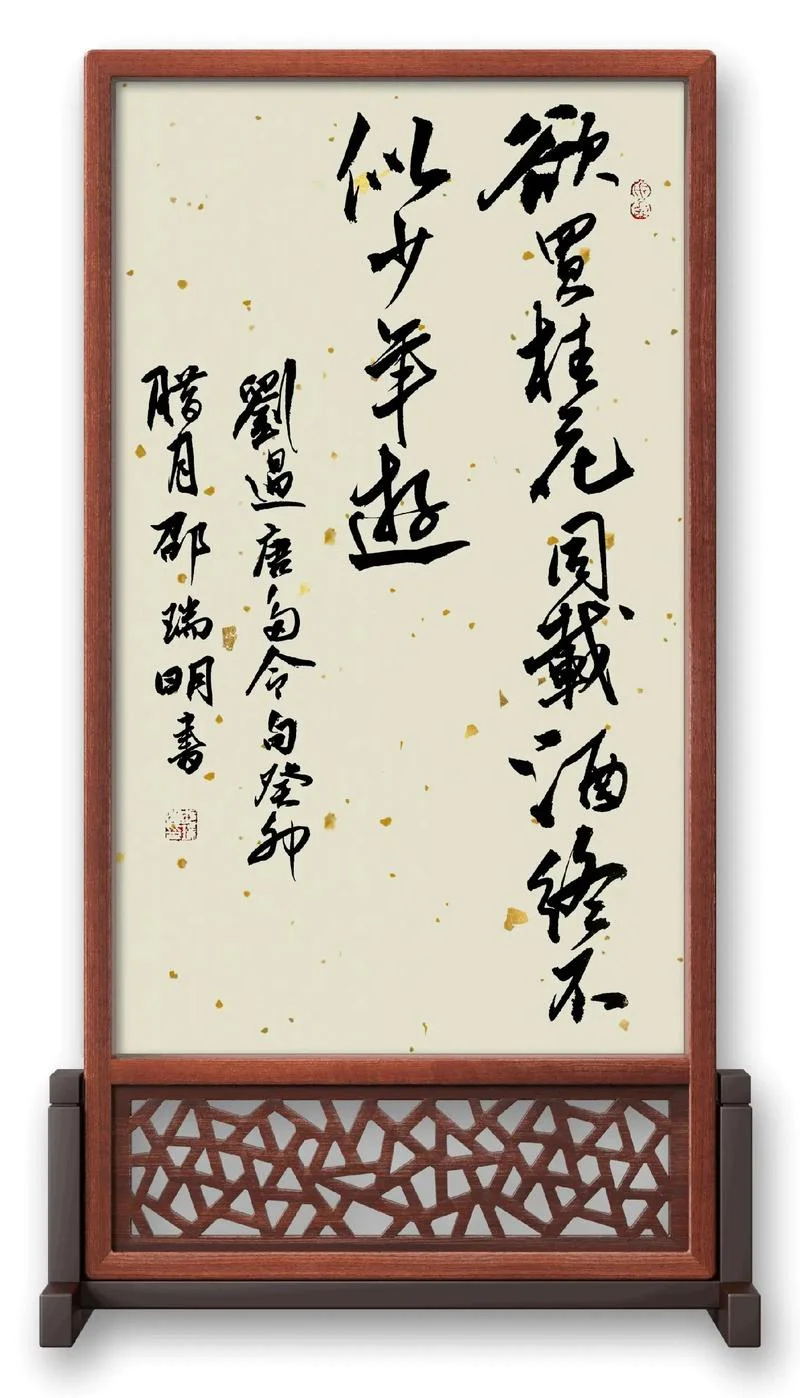 欲買桂花同載酒終不
似少年遊
劉過唐多令句癸卯
腊月邵瑞明書